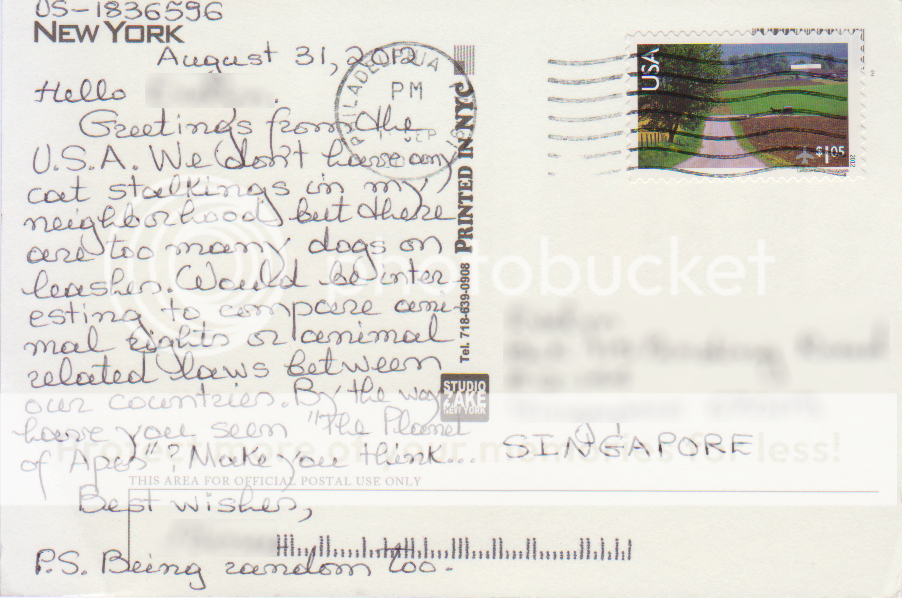 US-1836596
NEW YORK
August 31, 2012
Hello
Greetings from the
U.S.A. We don't have any
cat stalkings in my
neighborhood but there
are too many dogs on
leashes. Would be inter
esting to compare ani-
mal rights or animal
related laws between
our countries. By the way
have you seen "The Planet
of Apes"? Make you think...
Best wishes,
P.S. Being random too.
PHILADELPHIA
PM
SEP
USA
$1.05
2012
PRINTED IN NYC
Tel. 718-639-0908
STUDIO
ZAKE
NEW YORK
SINGAPORE
THIS AREA FOR OFFICIAL POSTAL USE ONLY
photobucket
Protect more of your memories for less!